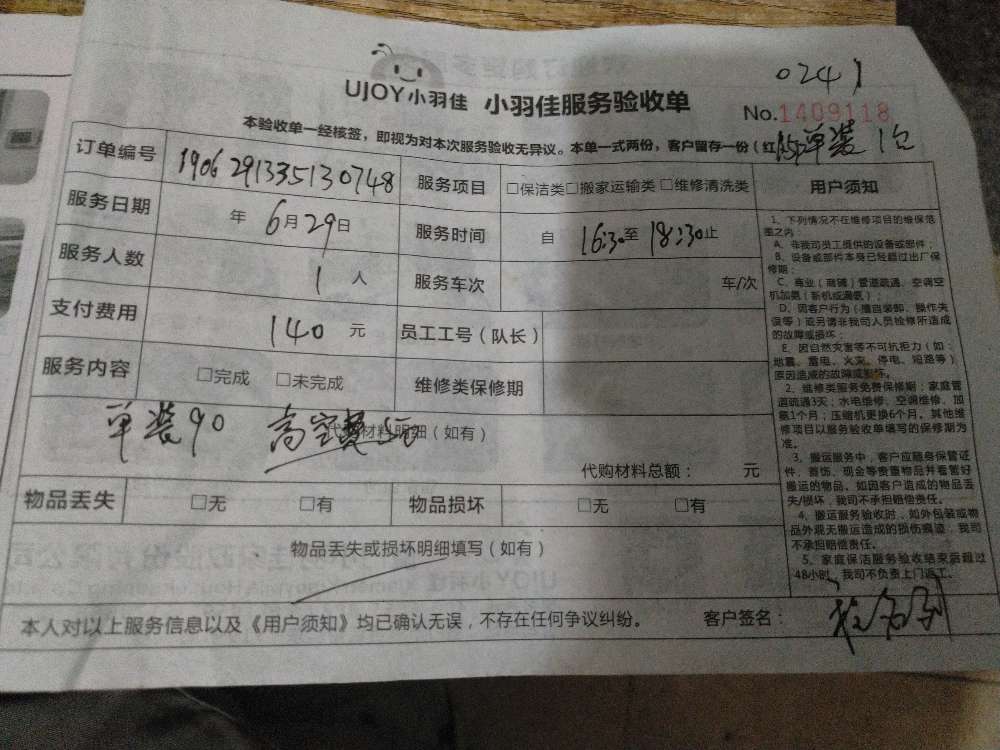 0241
UJOY小羽佳 小羽佳服务验收单
No.1409118
本验收单一经核签，即视为对本次服务验收无异议。本单一式两份，客户留存一份（红
单装 1台
订单编号 190629133513 0748 服务项目 □保洁类 □搬家运输类 □维修清洗类 用户须知
服务日期 年 6月29日 服务时间 自 16:30至 18:30止
服务人数 1 人 服务车次 车/次
支付费用 140 元 员工工号（队长）
服务内容 □完成 □未完成 维修类保修期
单装90 高空费50
代购材料明细（如有）
代购材料总额： 元
物品丢失 □无 □有 物品损坏 □无 □有
物品丢失或损坏明细填写（如有）
1、下列情况不在维修项目的维保范
围之内
A、非我司员工提供的设备或部件；
B、设备或部件本身已经超过出厂保
修期；
C、商业（商铺）管道疏通、空调空
机加氨（新机或漏氨）；
D、因客户行为（擅自装卸、操作失
误等）或另请非我司人员检修所造成
的故障或损坏；
E、因自然灾害等不可抗拒力（如：
地震、雷电、火灾、停电、短路等）
原因造成的故障或损坏。
2、维修类服务免费保修期：家庭管
道疏通3天；水电维修、空调维修、加
氨1个月；压缩机更换6个月。其他维
修项目以服务验收单填写的保修期为
准。
3、搬运服务中，客户应随身保管证
件、首饰、现金等贵重物品并看管好
搬运的物品。如因客户造成的物品丢
失/损坏，我司不承担赔偿责任。
4、搬运服务验收时，如外包装或物
品外观无搬运造成的损伤痕迹，我司
不承担赔偿责任。
5、家庭保洁服务验收结束后超过
48小时，我司不负责上门返工。
本人对以上服务信息以及《用户须知》均已确认无误，不存在任何争议纠纷。 客户签名：